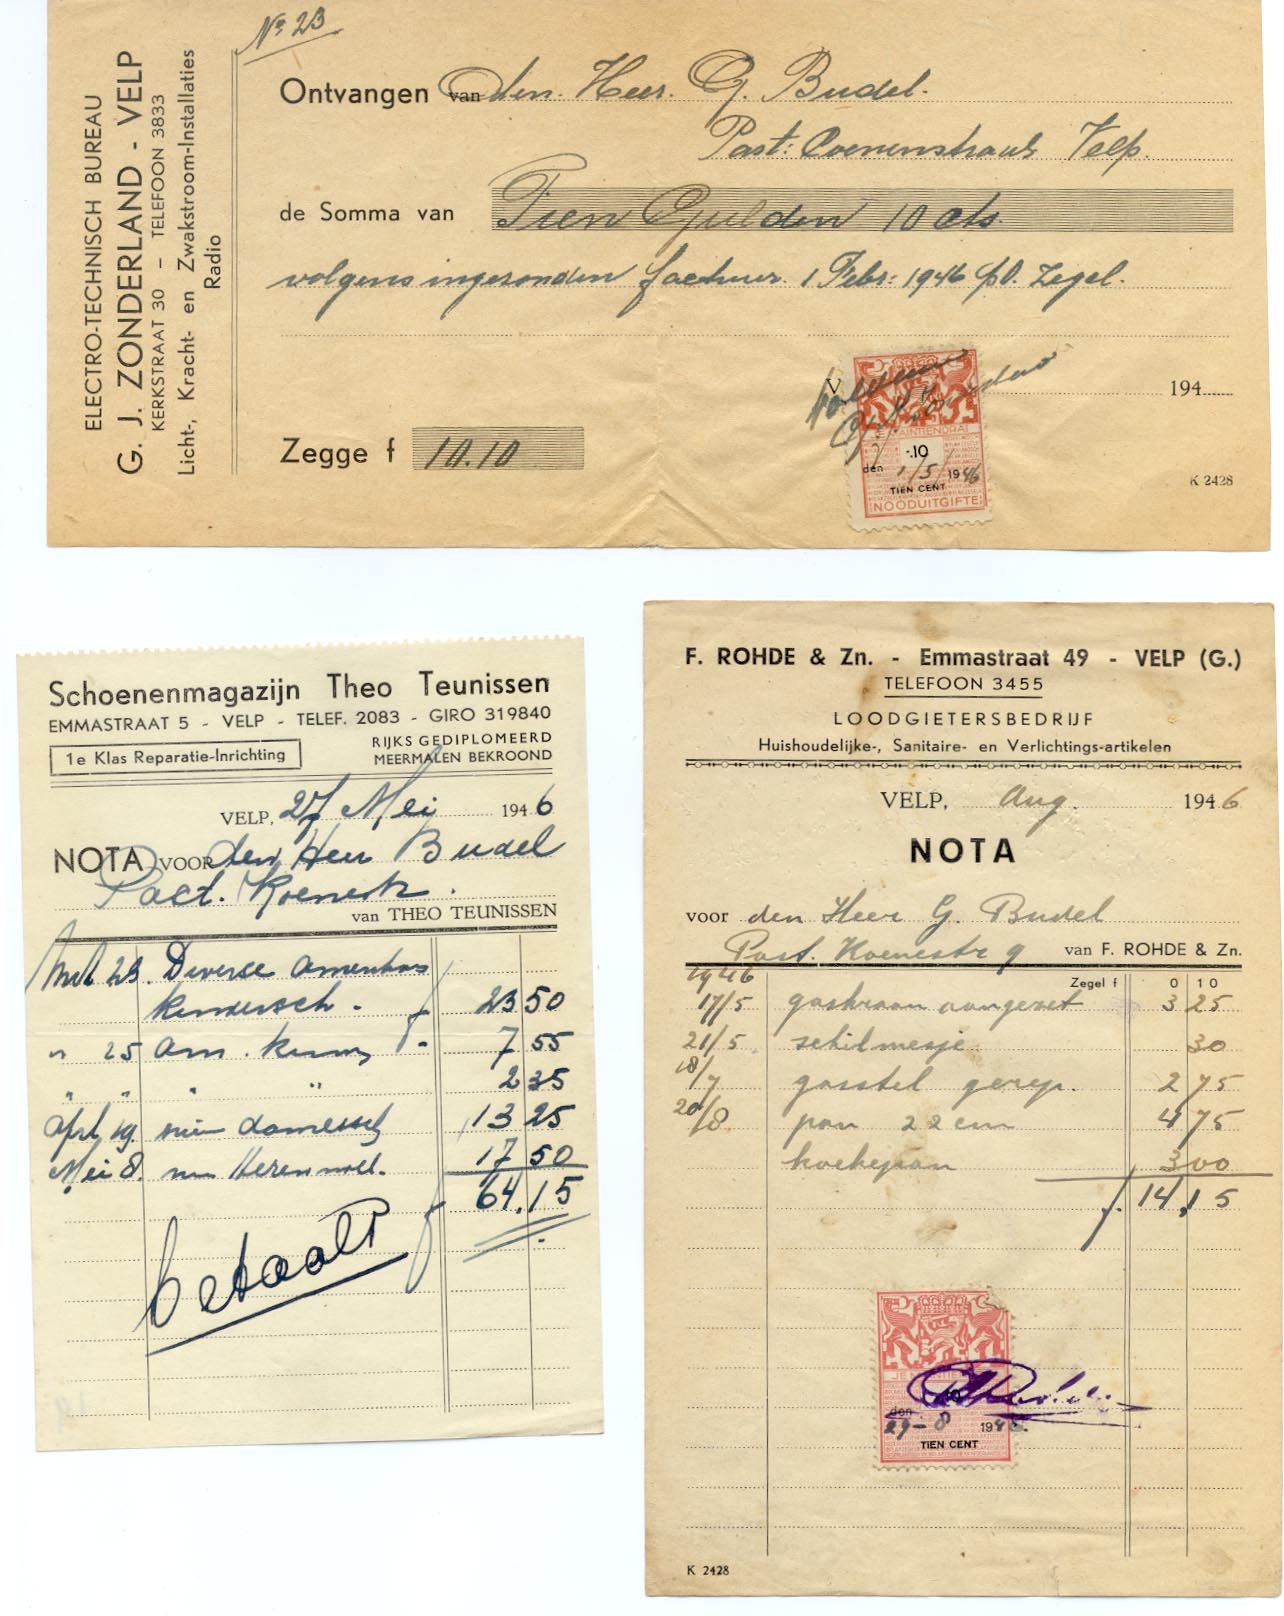 No 23
ELECTRO-TECHNISCH BUREAU
G. J. ZONDERLAND - VELP
KERKSTRAAT 30 - TELEFOON 3833
Licht-, Kracht- en Zwakstroom-Installaties
Radio
Ontvangen van den Heer. G. Budel.
Past: Coenenstraat Velp.
de Somma van Tien Gulden 10 cts.
volgens ingezonden factuur 1 Febr: 1946 pl. Zegel.
voldaan
194
-.10
den 1/5/ 1946
TIEN CENT
NOODUITGIFTE
Zegge f 10.10
K 2428
Schoenenmagazijn Theo Teunissen
EMMASTRAAT 5 - VELP - TELEF. 2083 - GIRO 319840
1e Klas Reparatie-Inrichting
RIJKS GEDIPLOMEERD
MEERMALEN BEKROOND
VELP, 27 Mei 1946
NOTA VOOR den Heer Budel
Past. Koenestr.
van THEO TEUNISSEN
23. Diverse
kindersch. f 23 50
" 25 am. - 7 55
" " " 2 35
April 19. damessch 13 25
Mei 8. 17 50
f 64.15
betaald
F. ROHDE & Zn. - Emmastraat 49 - VELP (G.)
TELEFOON 3455
LOODGIETERSBEDRIJF
Huishoudelijke-, Sanitaire- en Verlichtings-artikelen
VELP, Aug. 1946
NOTA
voor den Heer G. Budel
Past. Koenestr 9 van F. ROHDE & Zn.
1946 Zegel f 0 10
17/5 gaskraan aangezet 3 25
21/5 schilmesje 30
18/7 gasstel gerep. 2 75
20/8 pan 22 cm 4 75
koekepan 3 00
f. 14,15
den
29-8 1946
TIEN CENT
K 2428